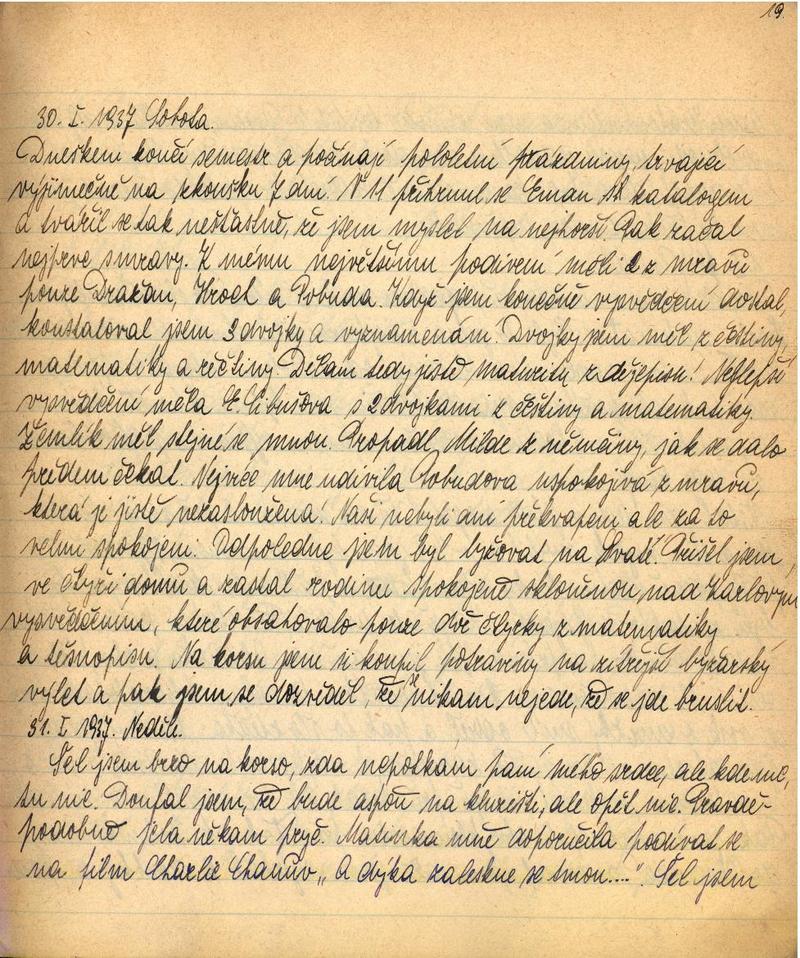 19.
30. I. 1937 Sobota.
Dneškem končí semestr a počínají pololetní prázdniny, trvající
výjimečně na zkoušku 7 dní. V 11 přihrnul se Eman s katalogem
a tvářil se tak nešťastně, že jsem myslel na nejhorší. Pak začal
nejprve s mravy. K mému největšímu podivení měli 2 z mravů
pouze Dražan, Kroel a Pobuda. Když jsem konečně vysvědčení dostal,
konstatoval jsem 3 dvojky a vyznamenání. Dvojky jsem měl z češtiny,
matematiky a řečtiny. Dělám tedy jistě maturitu z dějepisu! Nejlepší
vysvědčení měla E. Libušova s 2 dvojkami z češtiny a matematiky.
Žemlík měl stejné se mnou. Propadl Milde z němčiny, jak se dalo
předem čekat. Nejvíce mne udivila Pobudova uspokojivá z mravů,
která je jistě nezasloužená! Naši nebyli ani překvapeni ale za to
velmi spokojeni. Odpoledne jsem byl lyžovat na Svaté. Přišel jsem
ve čtyři domů a zastal rodinu spokojeně skloněnou nad Karlovým
vysvědčením, které obsahovalo pouze dvě čtyrky z matematiky
a těsnopisu. Na korsu jsem si koupil potraviny na zítřejší lyžařský
výlet a pak jsem se dozvěděl, že se nikam nejede, že se jde bruslit.
31. I 1937. Neděle.
Šel jsem brzo na korso, zda nepotkám paní mého srdce, ale kde nic,
tu nic. Doufal jsem, že bude aspoň na kluzišti, ale opět nic. Pravdě-
podobně jela někam pryč. Maminka mně doporučila podívat se
na film Charlie Chanův „A dýka zaleskne se tmou....". Šel jsem